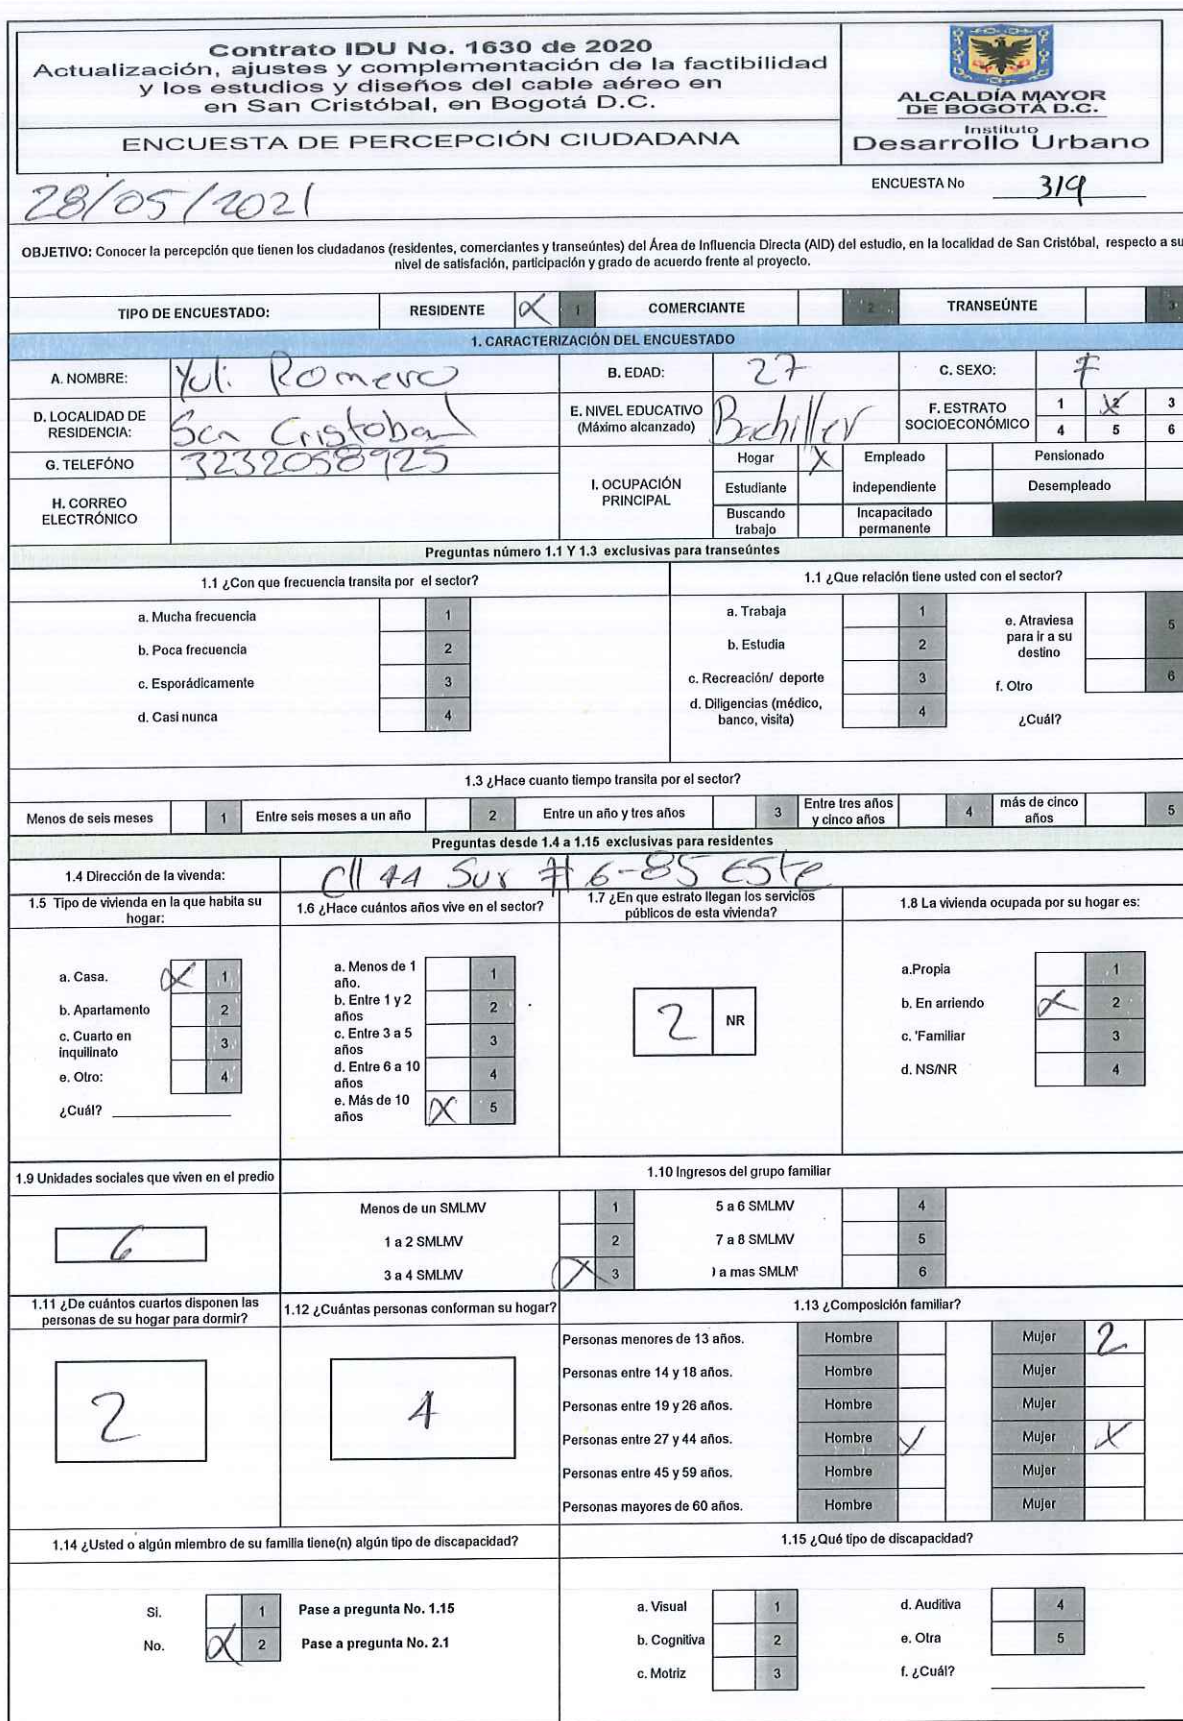 Contrato IDU No. 1630 de 2020
Actualización, ajustes y complementación de la factibilidad
y los estudios y diseños del cable aéreo en
en San Cristóbal, en Bogotá D.C.
ENCUESTA DE PERCEPCIÓN CIUDADANA
ALCALDÍA MAYOR
DE BOGOTÁ D.C.
Instituto
Desarrollo Urbano
28/05/2021
ENCUESTA No 319
OBJETIVO: Conocer la percepción que tienen los ciudadanos (residentes, comerciantes y transeúntes) del Área de Influencia Directa (AID) del estudio, en la localidad de San Cristóbal, respecto a su
nivel de satisfacción, participación y grado de acuerdo frente al proyecto.
TIPO DE ENCUESTADO: RESIDENTE X 1 COMERCIANTE 2 TRANSEÚNTE 3
1. CARACTERIZACIÓN DEL ENCUESTADO
A. NOMBRE: Yuli Romero B. EDAD: 27 C. SEXO: F
D. LOCALIDAD DE RESIDENCIA: San Cristobal E. NIVEL EDUCATIVO (Máximo alcanzado) Bachiller F. ESTRATO SOCIOECONÓMICO 1 X2 3
4 5 6
G. TELEFÓNO 3232058925
H. CORREO ELECTRÓNICO
I. OCUPACIÓN PRINCIPAL
Hogar X Empleado Pensionado
Estudiante independiente Desempleado
Buscando trabajo Incapacitado permanente
Preguntas número 1.1 Y 1.3 exclusivas para transeúntes
1.1 ¿Con que frecuencia transita por el sector?
a. Mucha frecuencia 1
b. Poca frecuencia 2
c. Esporádicamente 3
d. Casi nunca 4
1.1 ¿Que relación tiene usted con el sector?
a. Trabaja 1
b. Estudia 2
c. Recreación/ deporte 3
d. Diligencias (médico, banco, visita) 4
e. Atraviesa para ir a su destino 5
f. Otro 6
¿Cuál?
1.3 ¿Hace cuanto tiempo transita por el sector?
Menos de seis meses 1 Entre seis meses a un año 2 Entre un año y tres años 3 Entre tres años y cinco años 4 más de cinco años 5
Preguntas desde 1.4 a 1.15 exclusivas para residentes
1.4 Dirección de la vivenda: Cll 44 Sur # 6-85 Este
1.5 Tipo de vivienda en la que habita su hogar:
a. Casa. X 1
b. Apartamento 2
c. Cuarto en inquilinato 3
e. Otro: 4
¿Cuál?
1.6 ¿Hace cuántos años vive en el sector?
a. Menos de 1 año. 1
b. Entre 1 y 2 años 2
c. Entre 3 a 5 años 3
d. Entre 6 a 10 años 4
e. Más de 10 años X 5
1.7 ¿En que estrato llegan los servicios públicos de esta vivienda?
2 NR
1.8 La vivienda ocupada por su hogar es:
a.Propia 1
b. En arriendo X 2
c. 'Familiar 3
d. NS/NR 4
1.9 Unidades sociales que viven en el predio
6
1.10 Ingresos del grupo familiar
Menos de un SMLMV 1 5 a 6 SMLMV 4
1 a 2 SMLMV 2 7 a 8 SMLMV 5
3 a 4 SMLMV X 3 a mas SMLM 6
1.11 ¿De cuántos cuartos disponen las personas de su hogar para dormir?
2
1.12 ¿Cuántas personas conforman su hogar?
4
1.13 ¿Composición familiar?
Personas menores de 13 años. Hombre Mujer 2
Personas entre 14 y 18 años. Hombre Mujer
Personas entre 19 y 26 años. Hombre Mujer
Personas entre 27 y 44 años. Hombre X Mujer X
Personas entre 45 y 59 años. Hombre Mujer
Personas mayores de 60 años. Hombre Mujer
1.14 ¿Usted o algún miembro de su familia tiene(n) algún tipo de discapacidad?
Si. 1 Pase a pregunta No. 1.15
No. X 2 Pase a pregunta No. 2.1
1.15 ¿Qué tipo de discapacidad?
a. Visual 1 d. Auditiva 4
b. Cognitiva 2 e. Otra 5
c. Motriz 3 f. ¿Cuál?